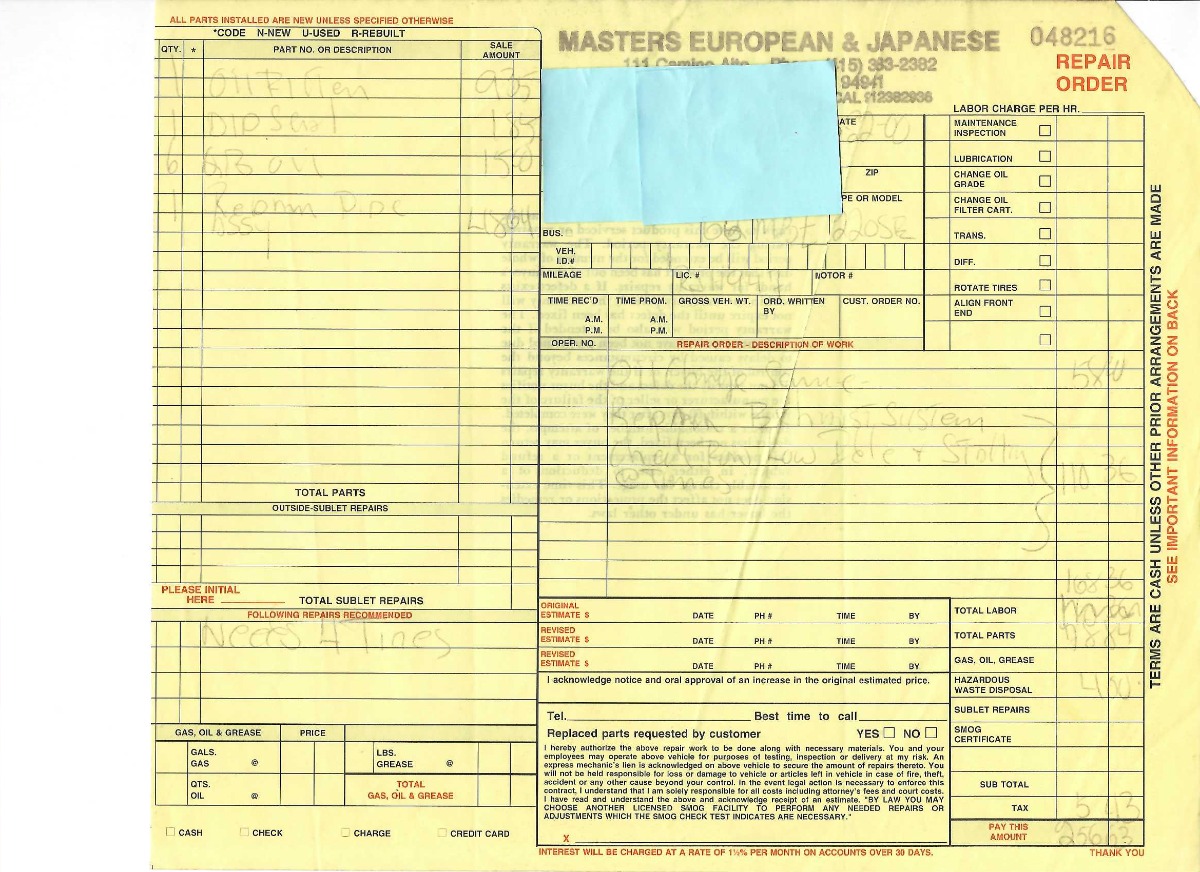 ALL PARTS INSTALLED ARE NEW UNLESS SPECIFIED OTHERWISE
*CODE N-NEW U-USED R-REBUILT
QTY. * PART NO. OR DESCRIPTION SALE AMOUNT
1 Oil Filter 935
1
6 oil 1500
1
Assy
TOTAL PARTS
OUTSIDE-SUBLET REPAIRS
PLEASE INITIAL
HERE TOTAL SUBLET REPAIRS
FOLLOWING REPAIRS RECOMMENDED
Needs 4 Tires
GAS, OIL & GREASE PRICE
GALS.
GAS @
LBS.
GREASE @
QTS.
OIL @
TOTAL
GAS, OIL & GREASE
CASH CHECK CHARGE CREDIT CARD
MASTERS EUROPEAN & JAPANESE
048216
REPAIR
ORDER
111 Camino Alto 383-2382
94941
LABOR CHARGE PER HR.
ATE
ZIP
PE OR MODEL
BUS.
220SE
VEH.
I.D.#
MILEAGE LIC. # MOTOR #
TIME REC'D TIME PROM. GROSS VEH. WT. ORD. WRITTEN BY CUST. ORDER NO.
A.M. A.M.
P.M. P.M.
OPER. NO. REPAIR ORDER - DESCRIPTION OF WORK
MAINTENANCE
INSPECTION
LUBRICATION
CHANGE OIL
GRADE
CHANGE OIL
FILTER CART.
TRANS.
DIFF.
ROTATE TIRES
ALIGN FRONT
END
Oil Change Service
Exhaust System
Low Idle + Stalling
110 36
168 36
ORIGINAL
ESTIMATE $ DATE PH # TIME BY
REVISED
ESTIMATE $ DATE PH # TIME BY
REVISED
ESTIMATE $ DATE PH # TIME BY
I acknowledge notice and oral approval of an increase in the original estimated price.
Tel. Best time to call
Replaced parts requested by customer YES NO
I hereby authorize the above repair work to be done along with necessary materials. You and your
employees may operate above vehicle for purposes of testing, inspection or delivery at my risk. An
express mechanic's lien is acknowledged on above vehicle to secure the amount of repairs thereto. You
will not be held responsible for loss or damage to vehicle or articles left in vehicle in case of fire, theft,
accident or any other cause beyond your control. In the event legal action is necessary to enforce this
contract, I understand that I am solely responsible for all costs including attorney's fees and court costs.
I have read and understand the above and acknowledge receipt of an estimate. "BY LAW YOU MAY
CHOOSE ANOTHER LICENSED SMOG FACILITY TO PERFORM ANY NEEDED REPAIRS OR
ADJUSTMENTS WHICH THE SMOG CHECK TEST INDICATES ARE NECESSARY."
X
INTEREST WILL BE CHARGED AT A RATE OF 1½% PER MONTH ON ACCOUNTS OVER 30 DAYS.
TOTAL LABOR
TOTAL PARTS 7884
GAS, OIL, GREASE
HAZARDOUS
WASTE DISPOSAL 4 00
SUBLET REPAIRS
SMOG
CERTIFICATE
SUB TOTAL
TAX 5 43
PAY THIS
AMOUNT 256 63
THANK YOU
TERMS ARE CASH UNLESS OTHER PRIOR ARRANGEMENTS ARE MADE
SEE IMPORTANT INFORMATION ON BACK